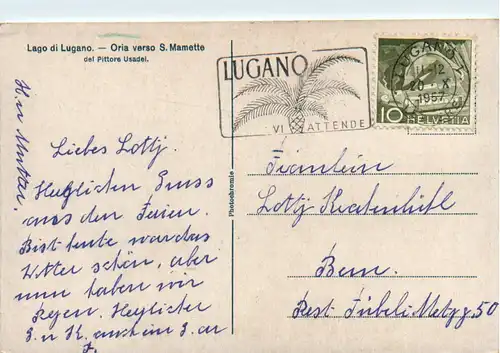 Lago di Lugano. — Oria verso S. Mamette
del Pittore Usadel.
LUGANO
VI ATTENDE
LUGANO 1
11-12
20. X
1957
10 HELVETIA
Photochromie
Liebes Lottj.
Herzlichen Gruss
aus den Ferien.
Bist heute war das
Wetter schön, aber
nun haben wir
Regen. Herzlichen
G. u K. auch ein G. an
H. u Muttar.
Fräulein
Lottj
Bern.
Rest. Tübeli Metzg. 50